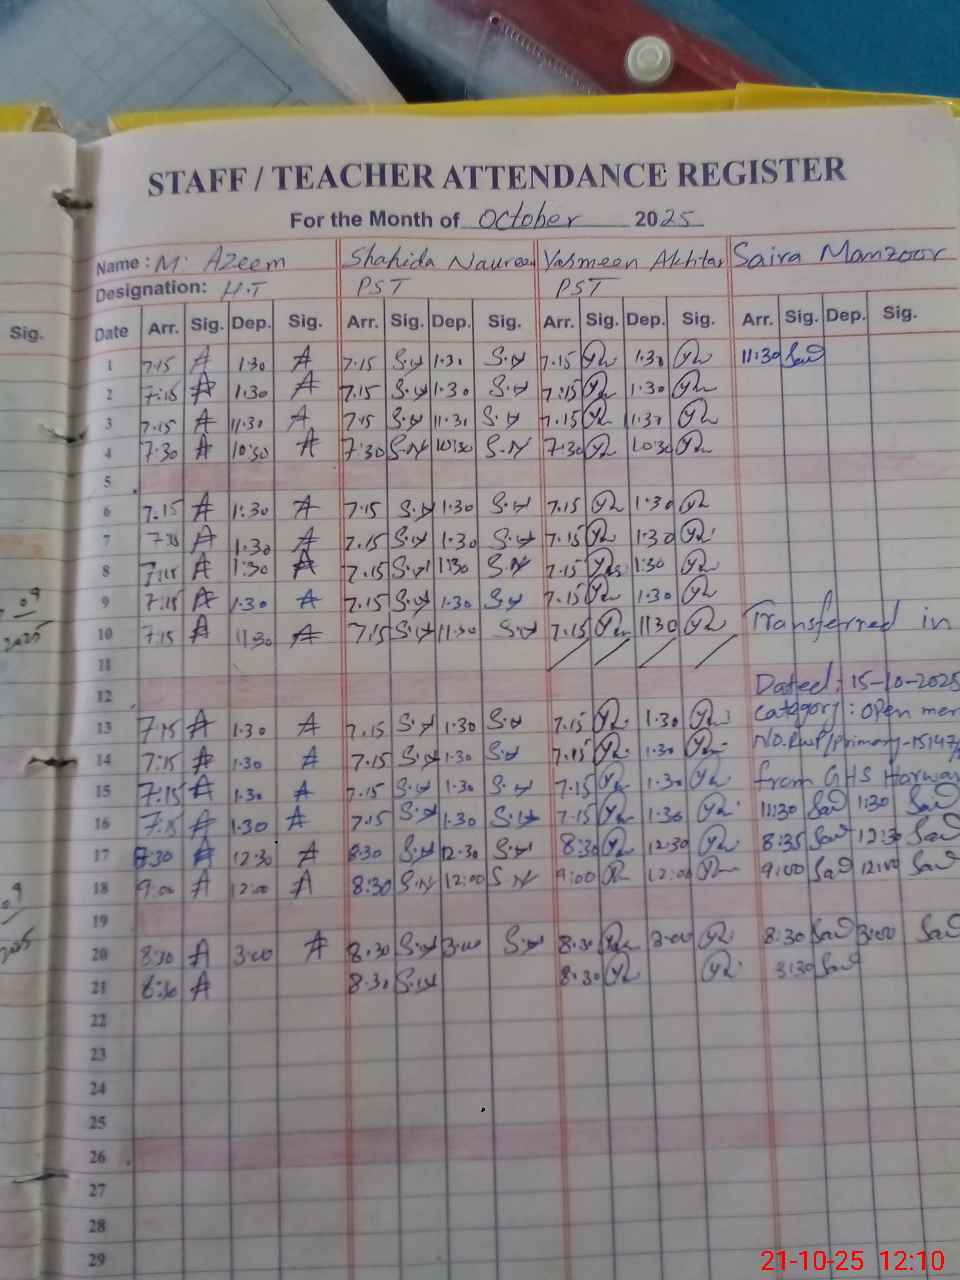 STAFF / TEACHER ATTENDANCE REGISTER
For the Month of October 2025
Name : M. Azeem Shahida Naureen Yasmeen Akhtar Saira Manzoor
Designation: H.T PST PST
Sig. Date Arr. Sig. Dep. Sig. Arr. Sig. Dep. Sig. Arr. Sig. Dep. Sig. Arr. Sig. Dep. Sig.
1 7.15 A 1.30 A 7.15 S.N 1.30 S.N 7.15 1.30 11:30
2 7:15 A 1.30 A 7.15 S.N 1.30 S.N 7.15 1.30
3 7.15 A 11.30 A 7.15 S.N 11.30 S.N 7.15 11.30
4 7.30 A 10.30 A 7.30 S.N 10.30 S.N 7.30 10.30
5
6 7.15 A 1.30 A 7.15 S.N 1.30 S.N 7.15 1.30
7 7.15 A 1.30 A 7.15 S.N 1.30 S.N 7.15 1.30
8 7.15 A 1.30 A 7.15 S.N 1.30 S.N 7.15 1.30
9 7.15 A 1.30 A 7.15 S.N 1.30 S.N 7.15 1.30
10 7.15 A 11.30 A 7.15 S.N 11.30 S.N 7.15 11.30 Transferred in
11
12 Dated: 15-10-2025
13 7.15 A 1.30 A 7.15 S.N 1.30 S.N 7.15 1.30 category: open mer
14 7.15 A 1.30 A 7.15 S.N 1.30 S.N 7.15 1.30 NO.RWP/Primary-15147/
15 7.15 A 1.30 A 7.15 S.N 1.30 S.N 7.15 1.30 from GHS
16 7.15 A 1.30 A 7.15 S.N 1.30 S.N 7.15 1.30 11:30 1:30
17 8.30 A 12.30 A 8.30 S.N 12.30 S.N 8.30 12.30 8:35 12:30
18 9:00 A 12:00 A 8:30 S.N 12:00 S.N 9:00 12:00 9:00 12:00
19
20 8.30 A 3:00 A 8.30 S.N 3:00 S.N 8.30 3:00 8:30 3:00
21 8:30 A 8.30 S.N 8.30
22
23
24
25
26
27
28
29
21-10-25 12:10